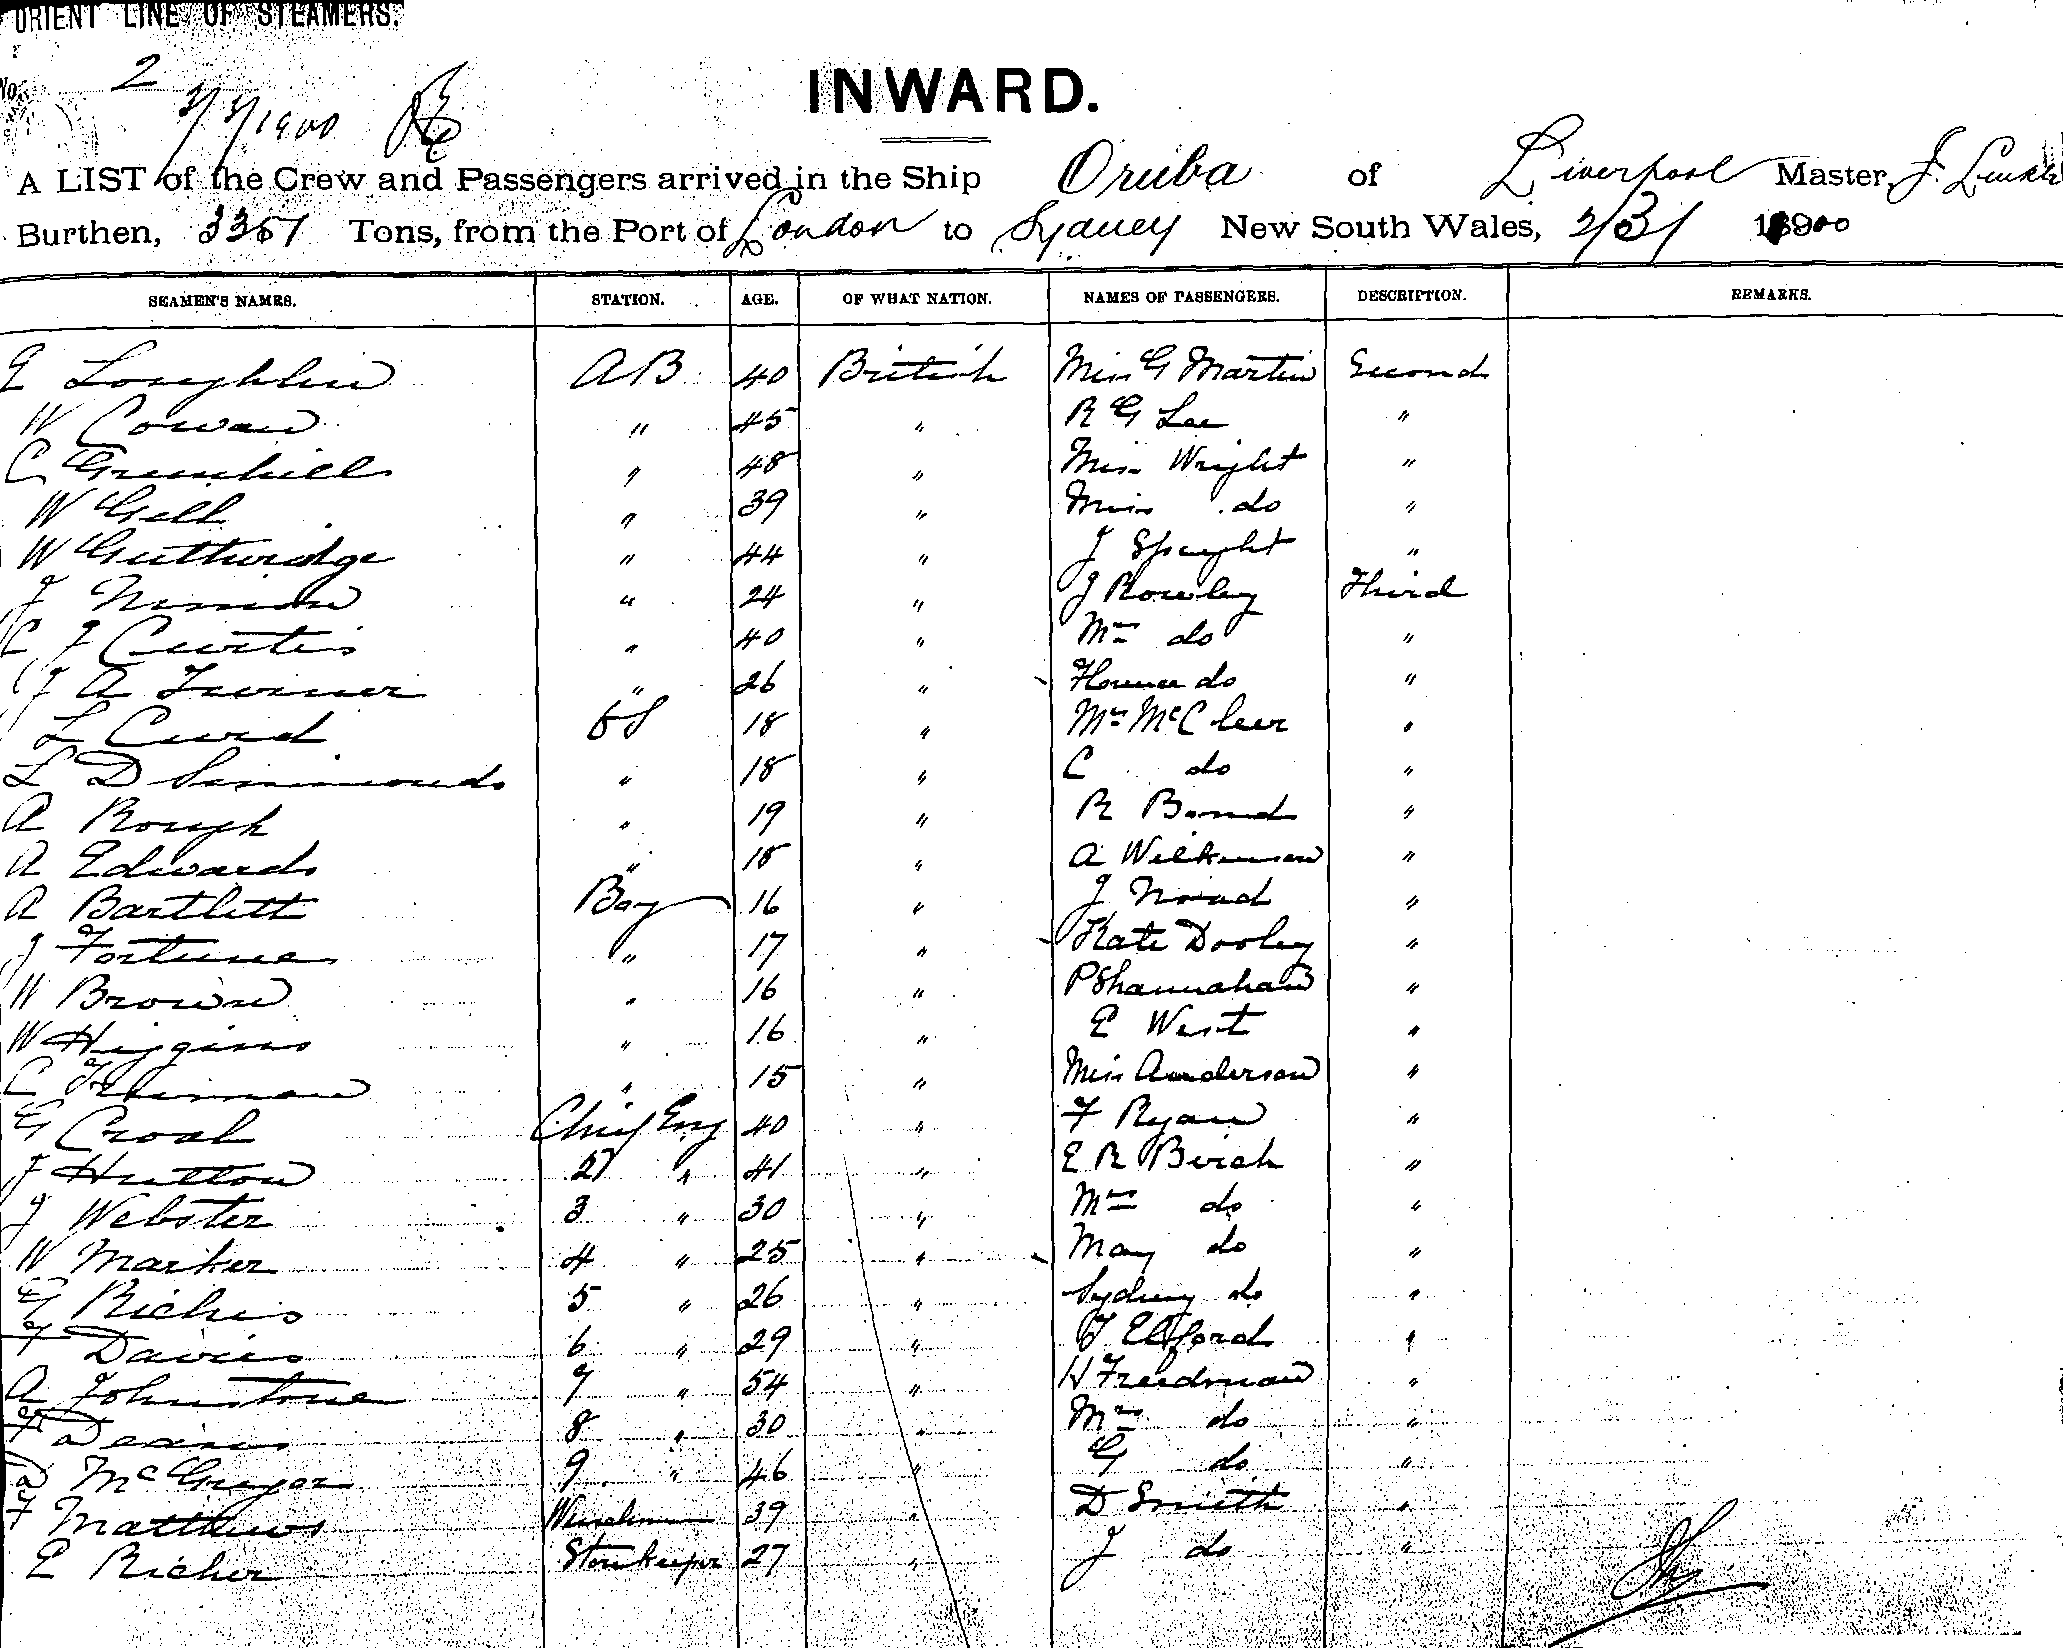 ORIENT LINE OF STEAMERS.
No. 2
2/3/1900
INWARD.
A LIST of the Crew and Passengers arrived in the Ship Oruba of Liverpool Master, J.
Burthen, 3351 Tons, from the Port of London to Sydney New South Wales, 2/3/ 1900
SEAMEN'S NAMES. STATION. AGE. OF WHAT NATION. NAMES OF PASSENGERS. DESCRIPTION. REMARKS.
E Loughlin AB 40 British Miss G Martin Second
W Cowan " 45 " R G Lee "
C Greenhill " 48 " Miss Wright "
W Gell " 39 " Miss do "
W Gutheridge " 44 " J Speight "
J " 24 " J Rowley Third
C J Curtis " 40 " Mrs do "
J A Turner " 26 " Florence do "
L Curd OS 18 " Mrs McCleer "
L D Simmonds " 18 " C do "
A Rough " 19 " R Bond "
A Edwards " 18 " A Wilkinson "
A Bartlett Boy 16 " J "
J Fortune " 17 " Kate Dooley "
W Brown " 16 " P Shannahan "
W Higgins " 16 " E West "
C " 15 " Miss Aanderson "
G Croal Chief Eng 40 " F Ryan "
J Hutton 2 " 41 " E R Birch "
J Webster 3 " 30 " Mrs do "
W Marker 4 " 25 " May do "
G Riches 5 " 26 " Sydney do "
F Davies 6 " 29 " "
A Johnstone 7 " 54 " H Freedman "
F Deans 8 " 30 " Mrs do "
D McGregor 9 " 46 " G do "
F Matthews Winchman 39 " D Smith "
E Richer Storekeeper 27 " J do "